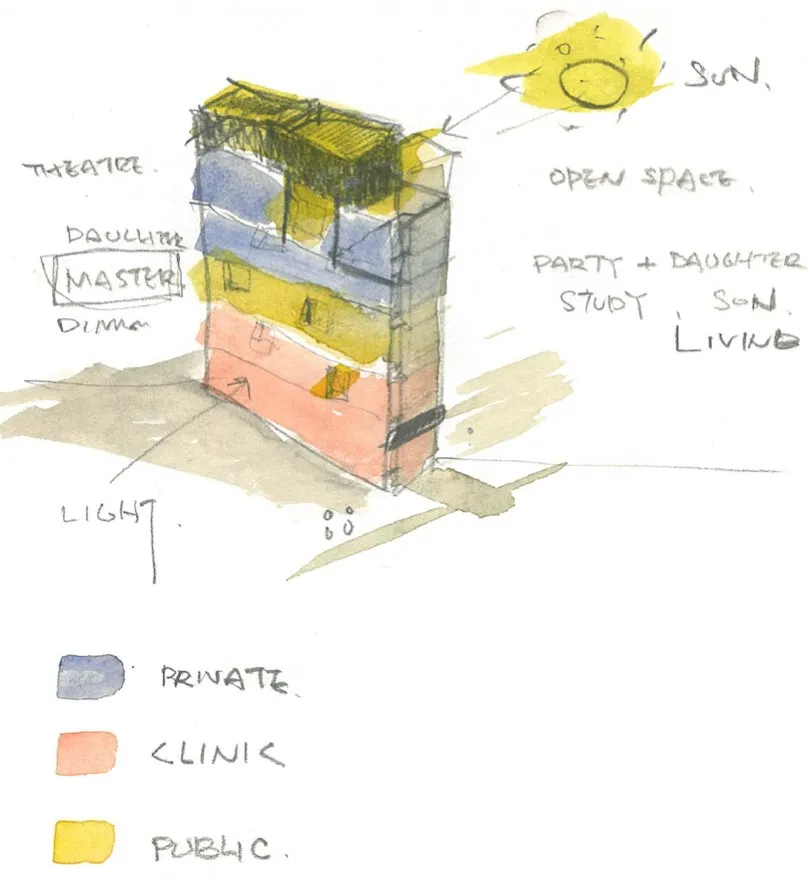 SUN.
THEATRE.
OPEN SPACE.
MASTER
PARTY + DAUGHTER
STUDY, SON.
LIVING
LIGHT.
PRIVATE.
CLINIC
PUBLIC.